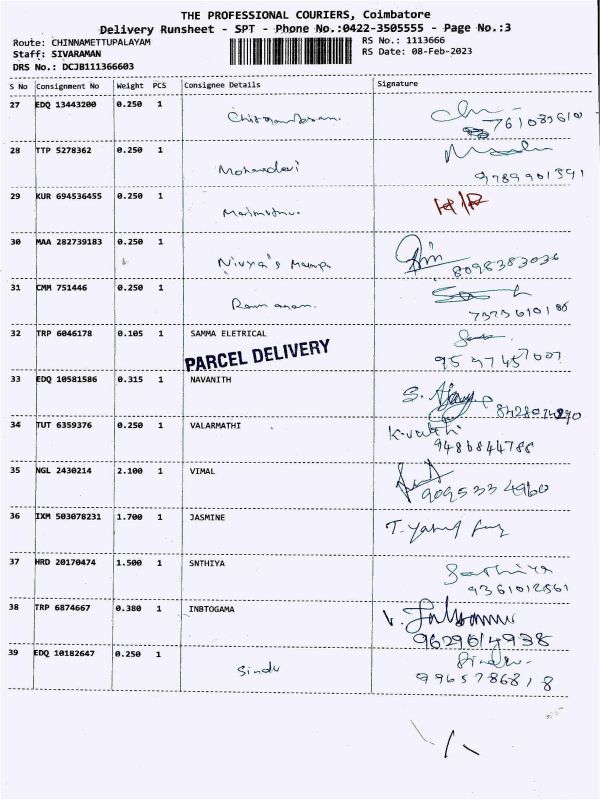 THE PROFESSIONAL COURIERS, Coimbatore
Delivery Runsheet - SPT - Phone No.:0422-3505555 - Page No.:3
Route: CHINNAMETTUPALAYAM RS No.: 1113666
Staff: SIVARAMAN RS Date: 08-Feb-2023
DRS No.: DCJB111366603
S No Consignment No Weight PCS Consignee Details Signature
27 EDQ 13443200 0.250 1
28 TTP 5278362 0.250 1 Mohandevi
9789901391
29 KUR 694536455 0.250 1
30 MAA 282739183 0.250 1 Nivya's
8098383036
31 CMM 751446 0.250 1
32 TRP 6046178 0.105 1 SAMMA ELETRICAL
PARCEL DELIVERY
33 EDQ 10581586 0.315 1 NAVANITH
34 TUT 6359376 0.250 1 VALARMATHI
9486844788
35 NGL 2430214 2.100 1 VIMAL
9095334960
36 IXM 503078231 1.700 1 JASMINE
37 HRD 20170474 1.500 1 SNTHIYA Santhiya
9361012861
38 TRP 6874667 0.380 1 INBTOGAMA
9629614938
39 EDQ 10182647 0.250 1 Sindu Sindu
9965786818